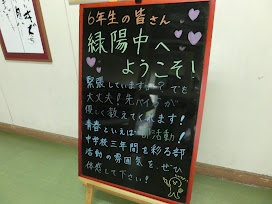 6年生の皆さん
緑陽中へ
ようこそ!
緊張していますか?でも
大丈夫!先パイ方が
優しく教えてくれます!
青春といえば部活動!
中学校三年間を彩る部
活動の雰囲気をぜひ
体感して下さい!